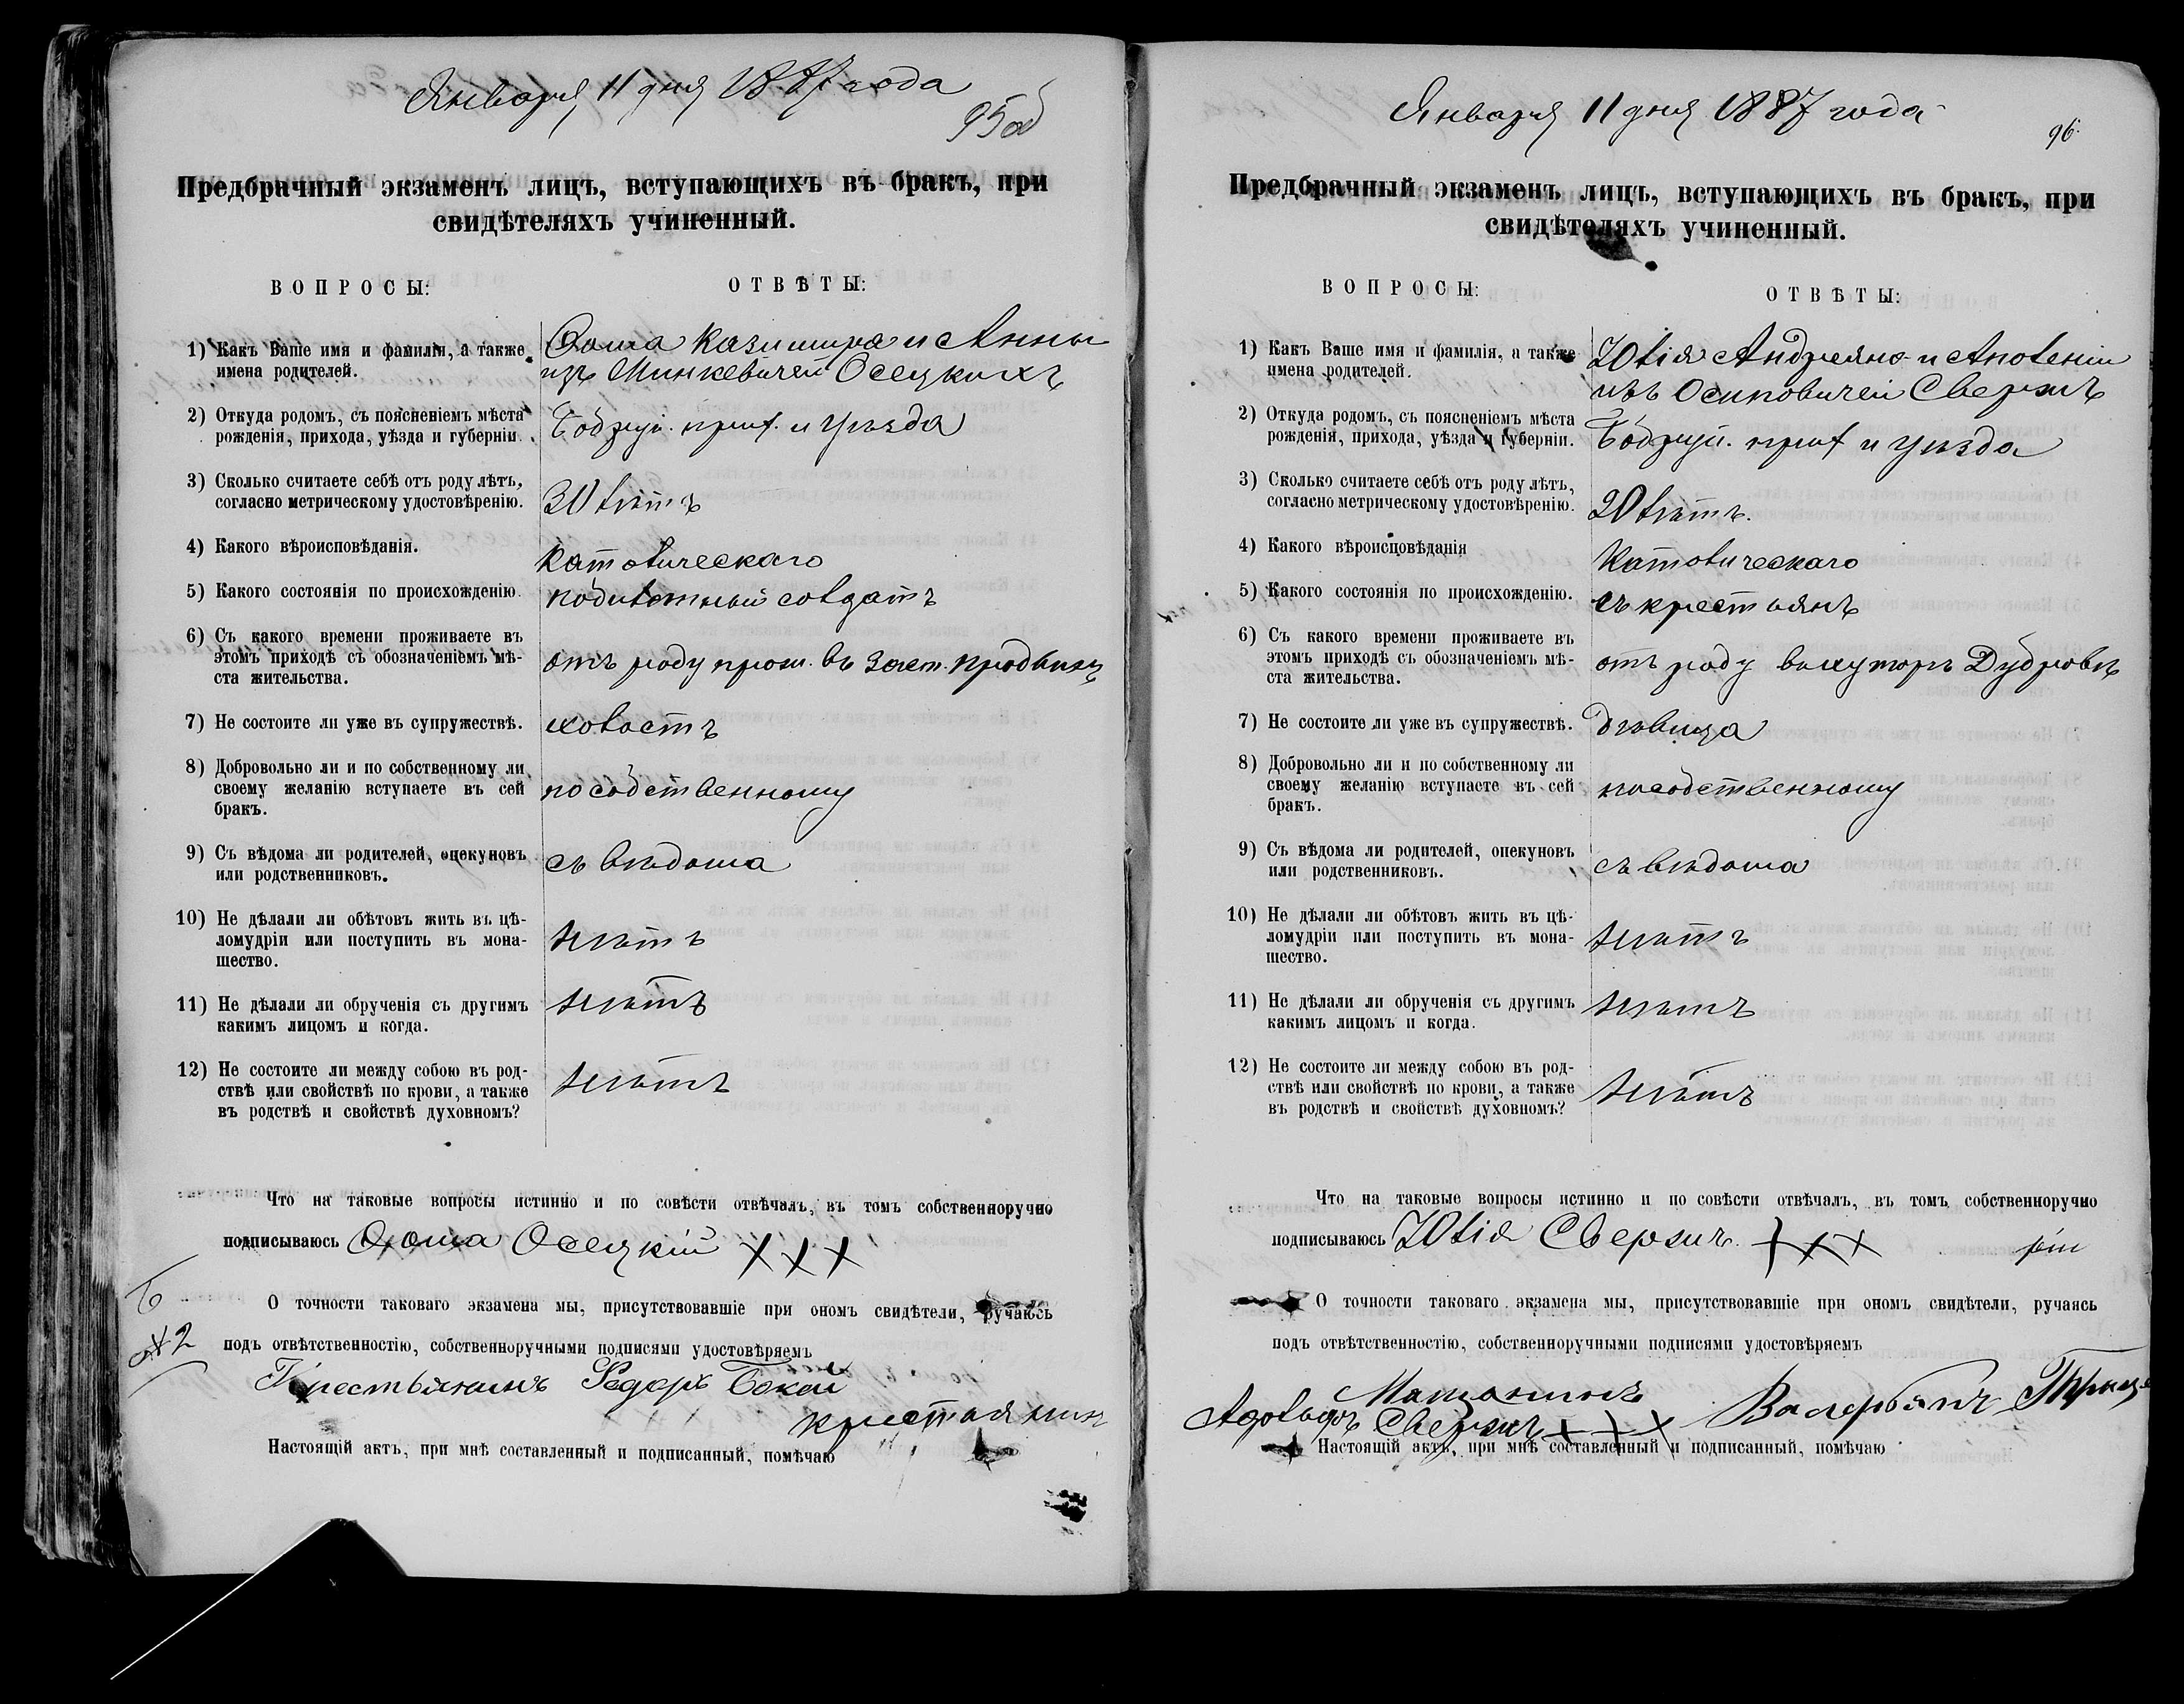 Января 11 дня 1887 года
95 об
Предбрачный экзаменъ лицъ, вступающихъ въ бракъ, при
свидѣтеляхъ учиненный.
ВОПРОСЫ:
ОТВѢТЫ:
1) Какъ Ваше имя и фамилія, а также
имена родителей.
Ѳома Казимира и Анны
изъ Минкевичей Осецкихъ
2) Откуда родомъ, съ поясненіемъ мѣста
рожденія, прихода, уѣзда и губерніи.
Бобруй. прих. и уѣзда
3) Сколько считаете себѣ отъ роду лѣтъ,
согласно метрическому удостовѣренію.
30 лѣтъ
4) Какого вѣроисповѣданія.
Католическаго
5) Какого состоянія по происхожденію.
солдатъ
6) Съ какого времени проживаете въ
этомъ приходѣ съ обозначеніемъ мѣ-
ста жительства.
отъ роду прож. въ
7) Не состоите ли уже въ супружествѣ.
холостъ
8) Добровольно ли и по собственному ли
своему желанію вступаете въ сей
бракъ.
по собственному
9) Съ вѣдома ли родителей, опекуновъ
или родственниковъ.
съ вѣдома
10) Не дѣлали ли обѣтовъ жить въ цѣ-
ломудріи или поступить въ мона-
шество.
нѣтъ
11) Не дѣлали ли обрученія съ другимъ
какимъ лицомъ и когда.
нѣтъ
12) Не состоите ли между собою въ род-
ствѣ или свойствѣ по крови, а также
въ родствѣ и свойствѣ духовномъ?
нѣтъ
Что на таковые вопросы истинно и по совѣсти отвѣчалъ, въ томъ собственноручно
подписываюсь Ѳома Осецкій ХХХ
О точности таковаго экзамена мы, присутствовавшіе при ономъ свидѣтели, ручаясь
подъ отвѣтственностію, собственноручными подписями удостовѣряемъ
Крестьянинъ Федоръ Бокай
Настоящій актъ, при мнѣ составленный и подписанный, помѣчаю
Января 11 дня 1887 года
96
Предбрачный экзаменъ лицъ, вступающихъ въ бракъ, при
свидѣтеляхъ учиненный.
ВОПРОСЫ:
ОТВѢТЫ:
1) Какъ Ваше имя и фамилія, а также
имена родителей.
Юлія Андреяна и Аполеніи
изъ Осиповичей Свержъ
2) Откуда родомъ, съ поясненіемъ мѣста
рожденія, прихода, уѣзда и губерніи.
Бобруй. прих и уѣзда
3) Сколько считаете себѣ отъ роду лѣтъ,
согласно метрическому удостовѣренію.
20 лѣтъ.
4) Какого вѣроисповѣданія
Католическаго
5) Какого состоянія по происхожденію.
съ крестьянъ
6) Съ какого времени проживаете въ
этомъ приходѣ съ обозначеніемъ мѣ-
ста жительства.
отъ роду въ хуторѣ Дубровкѣ
7) Не состоите ли уже въ супружествѣ.
дѣвица
8) Добровольно ли и по собственному ли
своему желанію вступаете въ сей
бракъ.
по собственному
9) Съ вѣдома ли родителей, опекуновъ
или родственниковъ.
съ вѣдома
10) Не дѣлали ли обѣтовъ жить въ цѣ-
ломудріи или поступить въ мона-
шество.
нѣтъ
11) Не дѣлали ли обрученія съ другимъ
какимъ лицомъ и когда.
нѣтъ
12) Не состоите ли между собою въ род-
ствѣ или свойствѣ по крови, а также
въ родствѣ и свойствѣ духовномъ?
нѣтъ
Что на таковые вопросы истинно и по совѣсти отвѣчалъ, въ томъ собственноручно
подписываюсь Юлія Свержъ ХХХ
О точности таковаго экзамена мы, присутствовавшіе при ономъ свидѣтели, ручаясь
подъ отвѣтственностію, собственноручными подписями удостовѣряемъ
крестьянинъ Валерьянъ
Мѣщанинъ
Адольфъ Свержъ ХХХ
Настоящій актъ, при мнѣ составленный и подписанный, помѣчаю